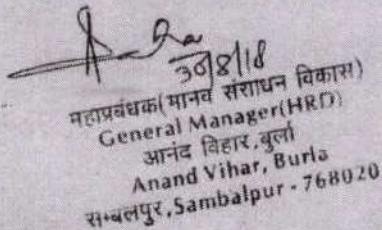 30/8/18
महाप्रबंधक(मानव संसाधन विकास)
General Manager(HRD)
आनंद विहार,बुर्ला
Anand Vihar, Burla
सम्बलपुर,Sambalpur - 768020